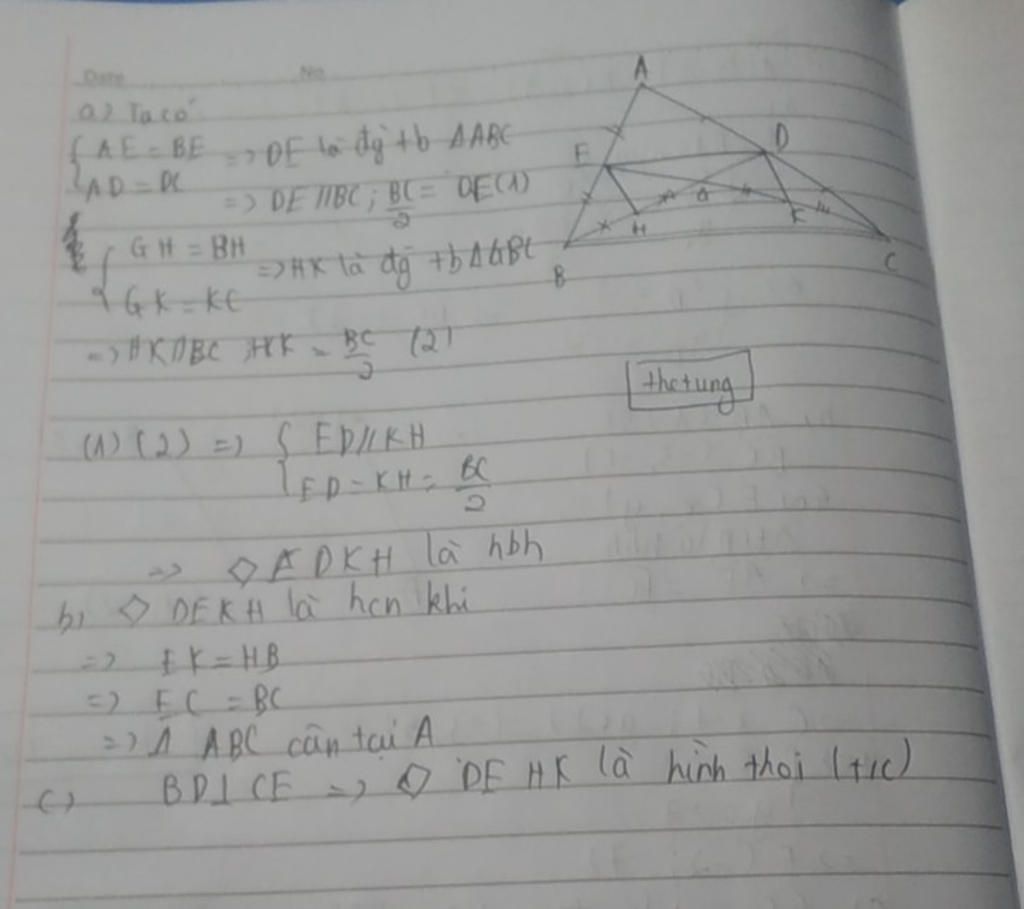 Date No
a) Ta có
{ AE = BE => DE là đg tb ΔABC
AD = DC => DE // BC ; BC/2 = DE (1)
{ GH = BH => HK là đg tb ΔGBC
GK = KC
=> HK // BC HK = BC/2 (2)
(1) (2) => { ED // KH
ED = KH = BC/2
=> ◇ EDKH là hbh
b) ◇ DEKH là hcn khi
=> EK = HB
=> EC = BC
=> Δ ABC cân tại A
c) BD ⊥ CE => ◇ DEHK là hình thoi (t/c)
A
E
D
G
H
K
B
C
thctung